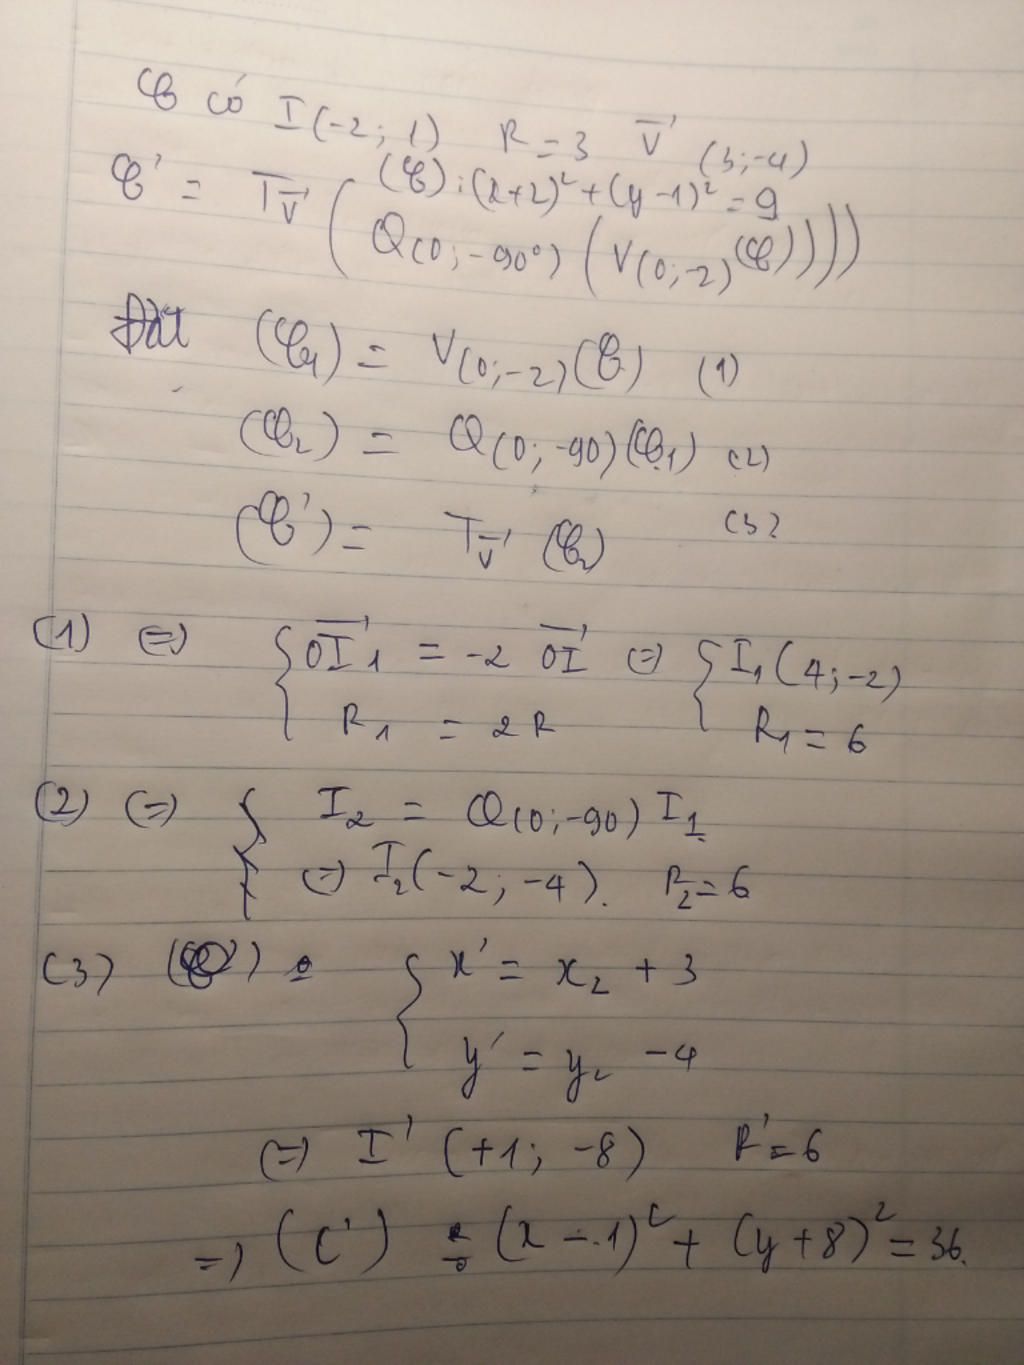 𝒞 có I(-2; 1) R = 3 v⃗ (3; -4)
𝒞' = T_v⃗ ( (𝒞): (x+2)² + (y-1)² = 9
Q(0; -90°) (V(0; -2)(𝒞))))
Đặt (𝒞₁) = V(0; -2)(𝒞) (1)
(𝒞₂) = Q(0; -90)(𝒞₁) (2)
(𝒞') = T_v⃗ (𝒞₂) (3)
(1) (=) { OI⃗₁ = -2 OI⃗ (=) { I₁(4; -2)
R₁ = 2R R₁ = 6
(2) (=) { I₂ = Q(0; -90) I₁
(=) I₂(-2; -4). R₂ = 6
(3) (𝒞') : { x' = x₂ + 3
y' = y₂ - 4
(=) I' (+1; -8) R' = 6
=) (C') : (x - 1)² + (y + 8)² = 36.